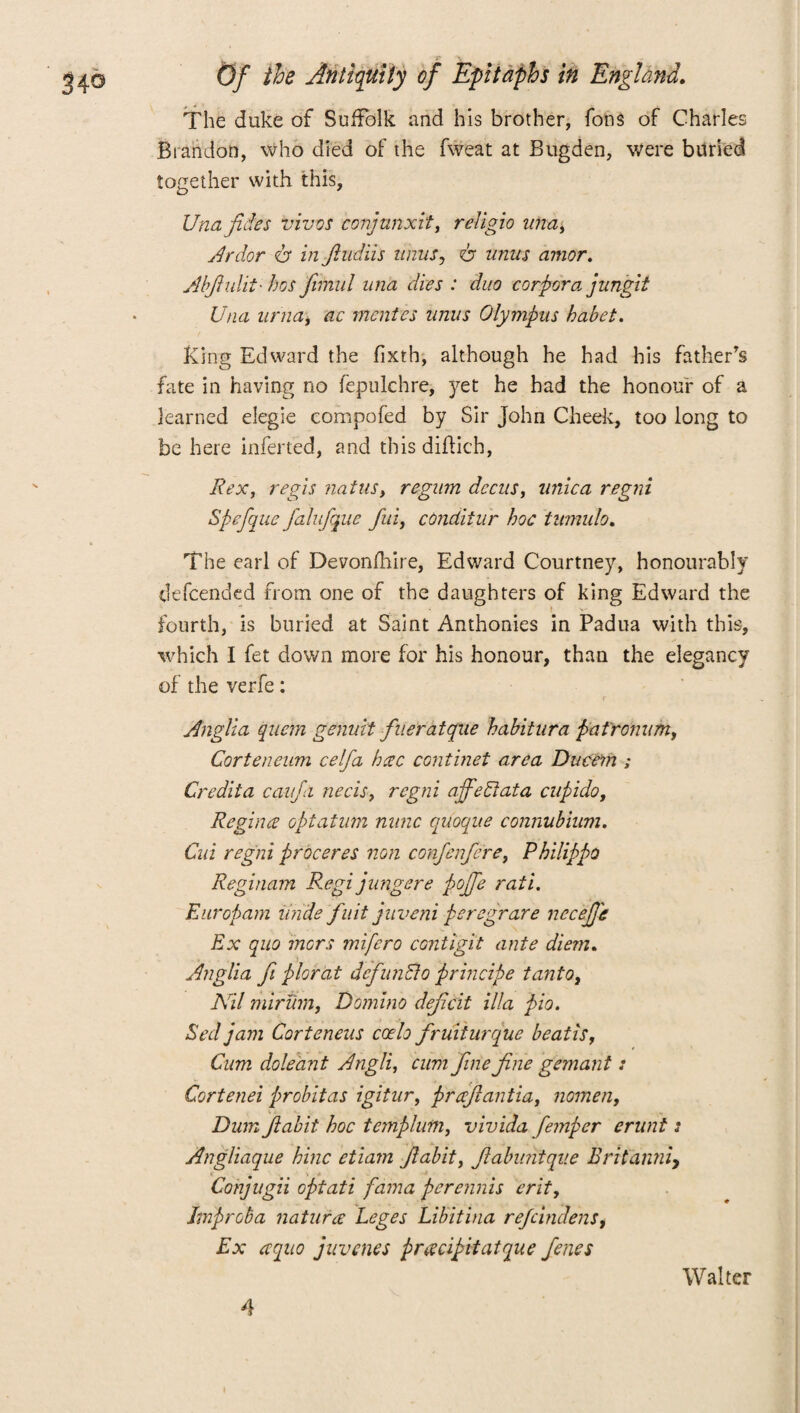 340 Of the Antiquity of Epitaphs in England.
The duke of Suffolk and his brother, ſons of Charles
Brandon, who died of the ſweat at Bugden, were buried
together with this,
Una fides vivos conjunxit, religio una,
Ardor & in ſtudiis unus, & unus amor.
Abſtulit hos ſimul una dies : duo corpora jungit
Una urna, ac mentes unus Olympus habet.
King Edward the ſixth, although he had his father's
fate in having no ſepulchre, yet he had the honour of a
learned elegie compoſed by Sir John Cheek, too long to
be here inſerted, and this diſtich,
Rex, regis natus, regum decus, unica regni
Speſque ſaluſque fui, conditur hoc tumulo.
The earl of Devonſhire, Edward Courtney, honourably
deſcended from one of the daughters of king Edward the
fourth, is buried at Saint Anthonies in Padua with this,
which I ſet down more for his honour, than the elegancy
of the verſe :
Anglia quem genuit fueratque habitura patronum,
Corteneum celſa hæc continet area Ducem ;
Credita cauſa necis, regni affectata cupido,
Reginæ optatum nunc quoque connubium.
Cui regni proceres non conſenſere, Philippo
Reginam Regi jungere poſſe rati.
Europam unde fuit juveni peregrare neceſſe
Ex quo mors miſero contigit ante diem.
Anglia ſi plorat defuncto principe tanto,
Nil mirum, Domino deficit illa pio.
Sed jam Corteneus cœlo fruiturque beatis,
Cum doleant Angli, cum ſine fine gemant :
Cortenei probitas igitur, præſtantia, nomen,
Dum ſtabit hoc templum, vivida ſemper erunt :
Angliaque hinc etiam ſtabit, ſtabuntque Britanni,
Conjugii optati fama perennis erit,
Improba naturæ Leges Libitina reſcindens,
Ex æquo juvenes præcipitatque ſenes
Walter
4